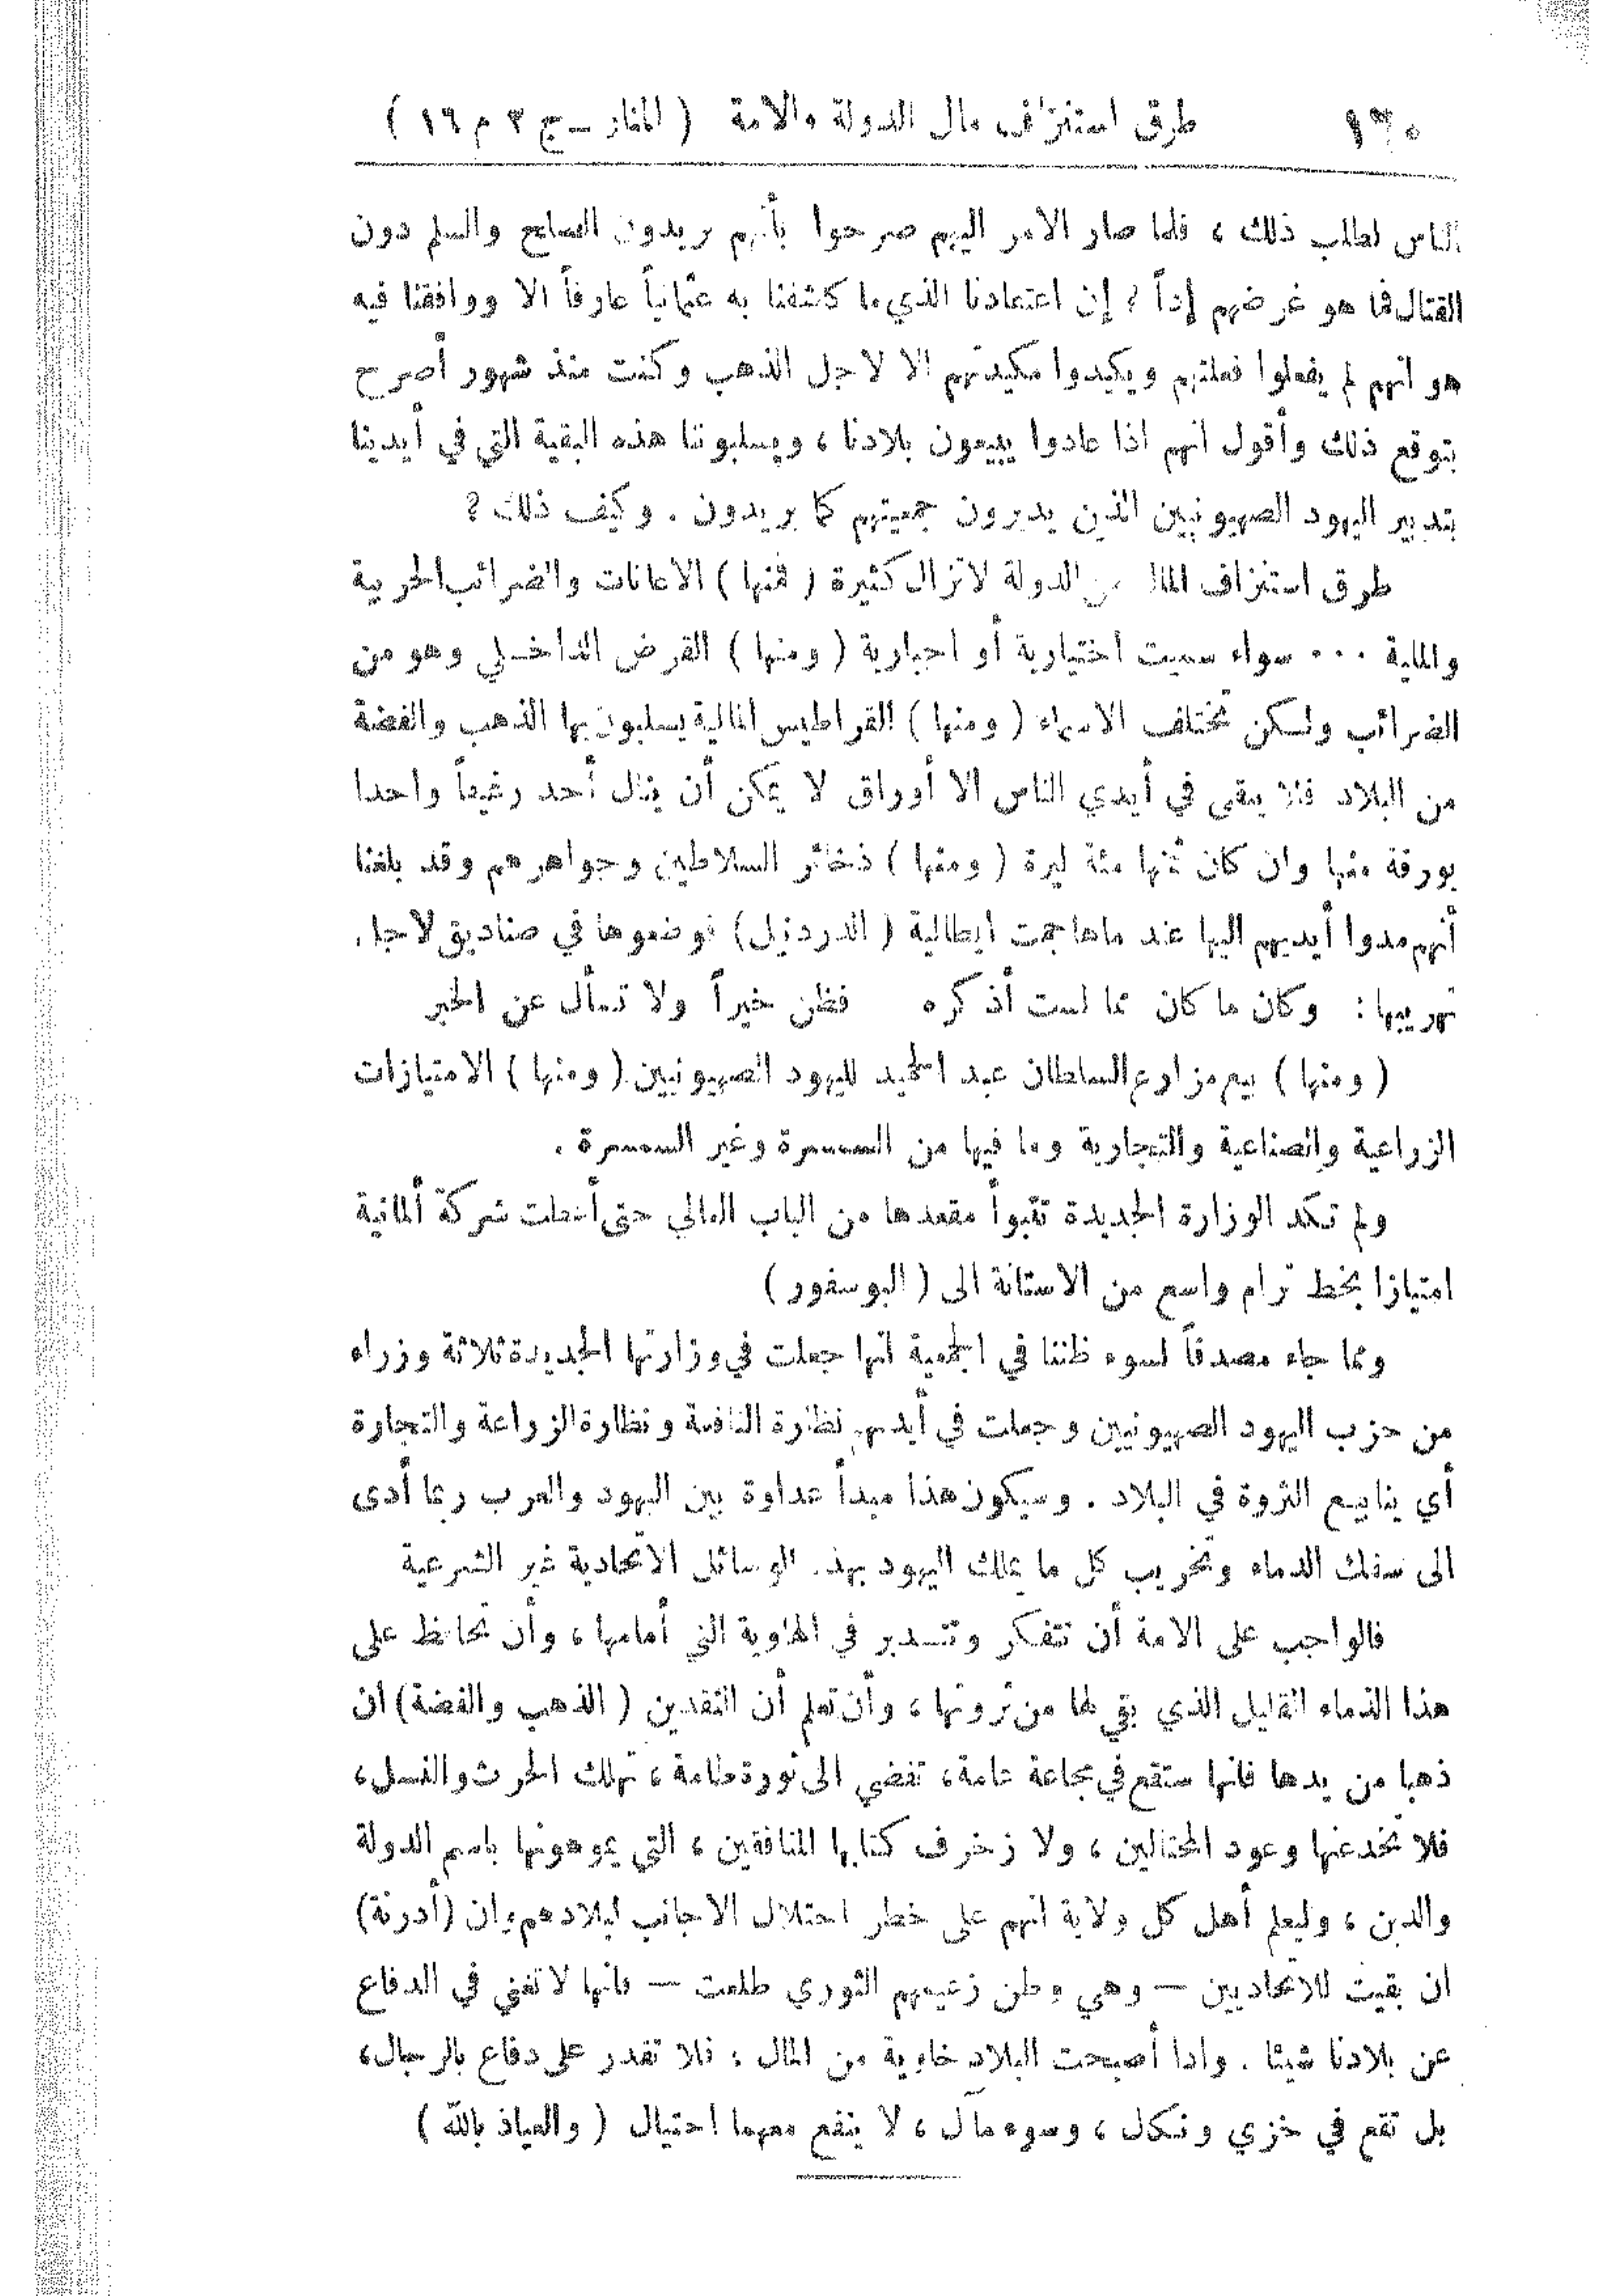 ١٦٠ طرق استنزاف مال الدولة والامة ( المنار ـ ج ٢ م ١٦ )
الناس لطلب ذلك ، فلما صار الامر اليهم صرحوا بأنهم يريدون الصلح والسلم دون
القتال فما هو غرضهم إذاً ؟ إن اعتقادنا الذي ما كاشفنا به عثمانياً عارفاً الا ووافقنا فيه
هو انهم لم يفعلوا فعلتهم ويكيدوا مكيدتهم الا لاجل الذهب وكنت منذ شهور أصرح
بتوقع ذلك وأقول انهم اذا عادوا يبيعون بلادنا ، ويسلبوننا هذه البقية التي في أيدينا
بتدبير اليهود الصهيونيين الذين يديرون جمعيتهم كما يريدون . وكيف ذلك ؟
طرق استنزاف المال من الدولة لاتزال كثيرة ( فمنها ) الاعانات والضرائب الحربية
والمالية ٠٠٠ سواء سميت اختيارية أو اجبارية ( ومنها ) القرض الداخلي وهو من
الضرائب ولكن تختلف الاسماء ( ومنها ) القراطيس المالية يسلبون بها الذهب والفضة
من البلاد فلا يبقى في أيدي الناس الا أوراق لا يمكن أن ينال أحد رغيفاً واحدا
بورقة منها وان كان ثمنها مئة ليرة ( ومنها ) ذخائر السلاطين وجواهرهم وقد بلغنا
أنهم مدوا أيديهم اليها عند ماهاجمت ايطالية ( الدردنيل ) فوضعوها في صناديق لاجل
تهريبها : وكان ما كان مما لست أذكره فظن خيراً ولا تسأل عن الخبر
( ومنها ) بيع مزارع السلطان عبد الحميد لليهود الصهيونيين ( ومنها ) الامتيازات
الزراعية والصناعية والتجارية وما فيها من السمسرة وغير السمسرة .
ولم تكد الوزارة الجديدة تتبوأ مقعدها من الباب العالي حتى أعطت شركة ألمانية
امتيازا بخط ترام واسع من الاستانة الى ( البوسفور )
ومما جاء مصدقاً لسوء ظننا في الجمعية انها جعلت في وزارتها الجديدة ثلاثة وزراء
من حزب اليهود الصهيونيين وجعلت في أيديهم نظارة النافعة ونظارة الزراعة والتجارة
أي ينابيع الثروة في البلاد . وسيكون هذا مبدأ عداوة بين اليهود والعرب ربما أدى
الى سفك الدماء وتخريب كل ما يملك اليهود بهذه الوسائل الاتحادية غير الشرعية
فالواجب على الامة أن تتفكر وتتدبر في الهاوية التي أمامها ، وأن تحافظ على
هذا الذماء القليل الذي بقي لها من ثروتها ، وأن تعلم أن النقدين ( الذهب والفضة ) ان
ذهبا من يدها فانها ستقع في مجاعة عامة ، تفضي الى ثورة طامة ، تهلك الحرث والنسل ،
فلا تخدعنها وعود المحتالين ، ولا زخرف كتابها المنافقين ، التي يموهونها باسم الدولة
والدين ، وليعلم أهل كل ولاية انهم على خطر احتلال الاجانب لبلادهم وان (أدرنة)
ان بقيت للاتحاديين — وهي وطن زعيمهم الثوري طلعت — فانها لاتغني في الدفاع
عن بلادنا شيئا . واذا أصبحت البلاد خاوية من المال ، فلا تقدر على دفاع بالرجال ،
بل تقع في خزي ونكال ، وسوء مآل ، لا ينفع معهما احتيال ( والعياذ بالله )